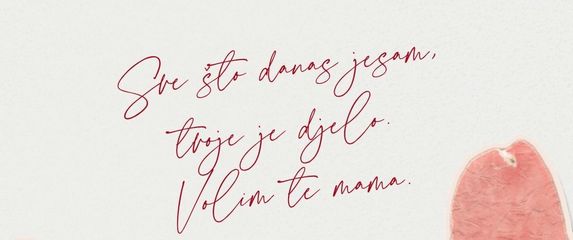 Sve što danas jesam,
tvoje je djelo.
Volim te mama.